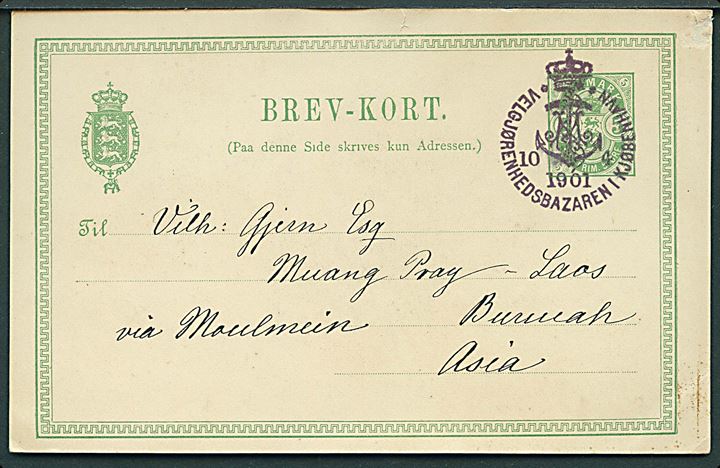 BREV-KORT.
(Paa denne Side skrives kun Adressen.)
VELGJØRENHEDSBAZAREN I KJØBENHAVN
10 4
1901
5
Til Vilh: Gjern Esq
Muang Pray - Laos
via Moulmein Burmah
Asia